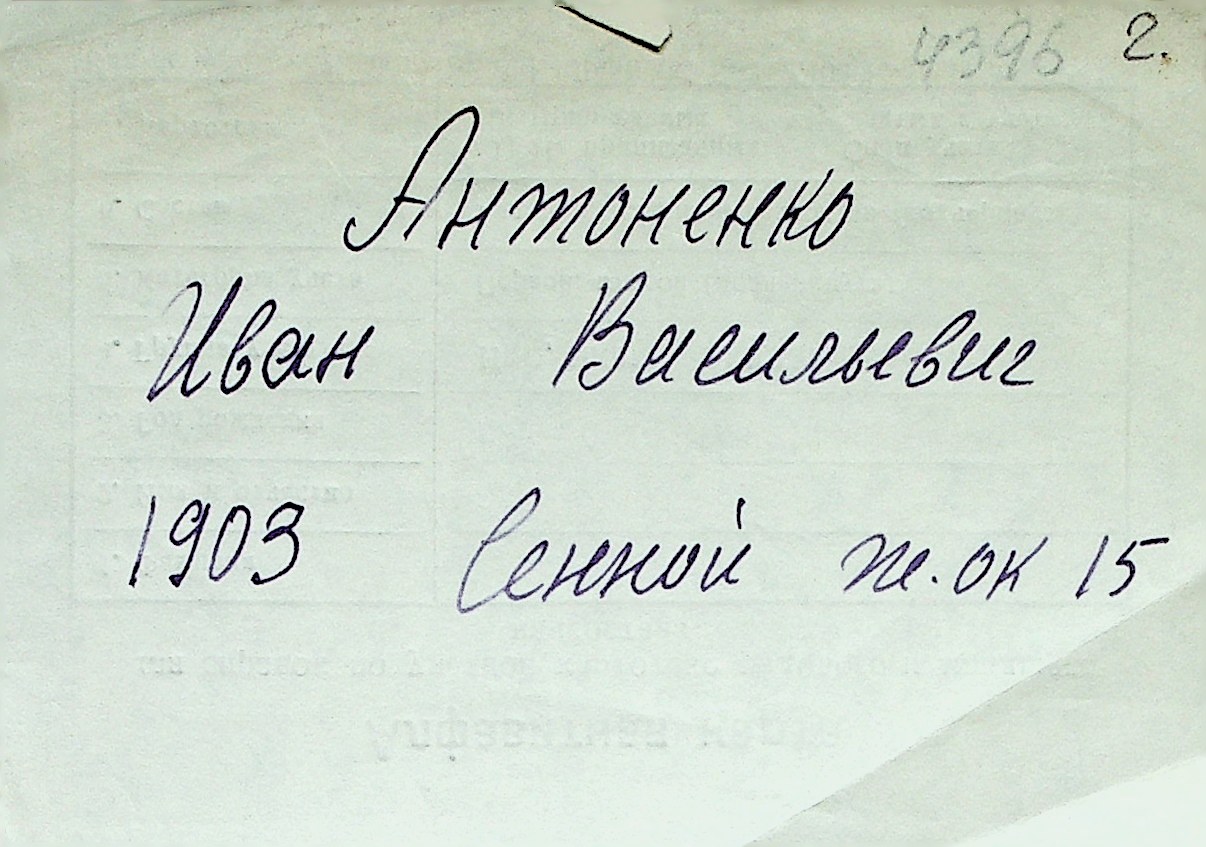 4396 2.
Антоненко
Иван Васильевич
1903 Сенной ж. ок 15